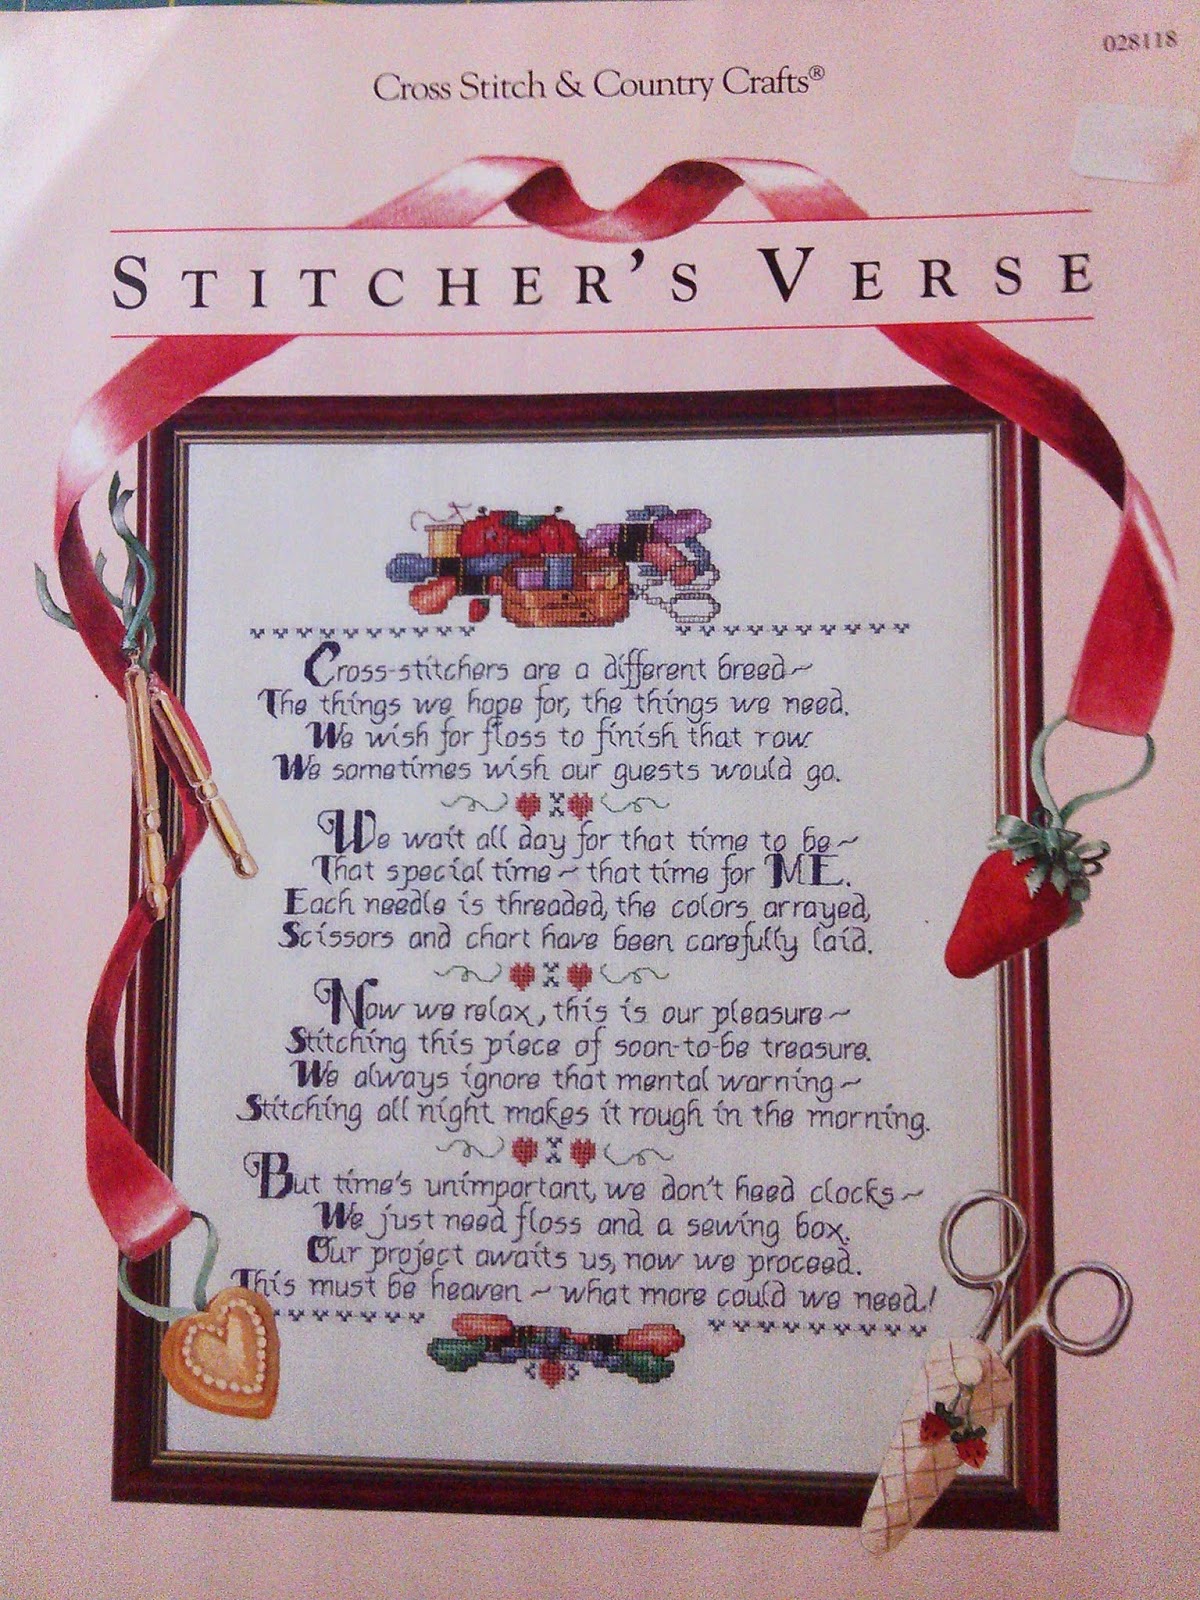 028118
Cross Stitch & Country Crafts®
STITCHER'S VERSE
Cross-stitchers are a different breed~
The things we hope for, the things we need.
We wish for floss to finish that row.
We sometimes wish our guests would go.
We wait all day for that time to be~
That special time~that time for ME.
Each needle is threaded, the colors arrayed,
Scissors and chart have been carefully laid.
Now we relax, this is our pleasure~
Stitching this piece of soon-to-be treasure.
We always ignore that mental warning~
Stitching all night makes it rough in the morning.
But time's unimportant, we don't heed clocks~
We just need floss and a sewing box.
Our project awaits us, now we proceed.
This must be heaven~what more could we need!